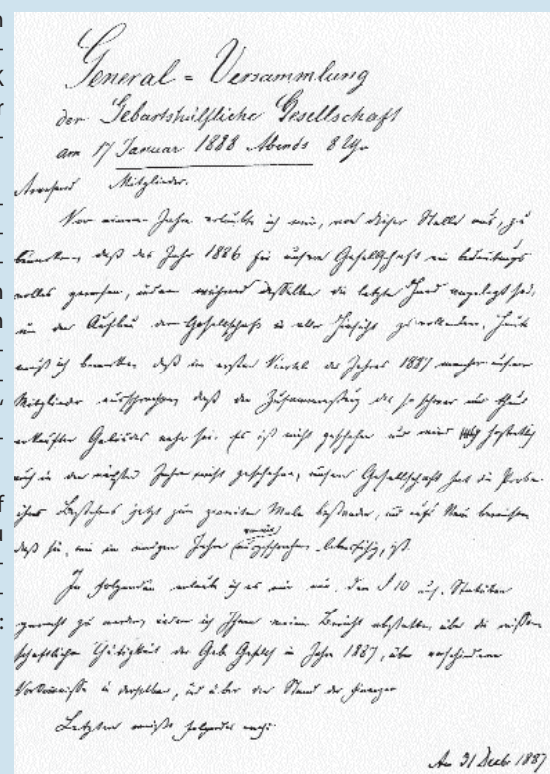 General = Versammlung
der Gebartshülfliche Gesellschaft
am 17 Januar 1888 Abends 8 Uhr
Anwesend Mitglieder.
Vor einem Jahre erlaubte ich mir, von dieser Stelle aus, zu
bemerken, daß das Jahr 1886 für unsere Gesellschaft ein bedeutungs
volles gewesen, indem während desselben die letzte Hand angelegt sei,
um den Aufbau der Gesellschaft in aller Hinsicht zu vollenden. Heute
muß ich bemerken daß im ersten Viertel des Jahres 1887 mancher unserer
Mitglieder aussprachen daß der Zusammensturz des so schwer und theuer
erkauften Gebäudes nahe sei. Es ist nicht geschehen und wird
auch in den nächsten Jahren nicht geschehen, unsere Gesellschaft hat die Probe
ihres Bestehens jetzt zum zweiten Male bestanden, und aufs Neue bewiesen
daß sie, wie im vorigen Jahre ausgesprochen lebensfähig, ist.
Im folgenden erlaube ich es mir nun, den § 10 uns. Statuten
gerecht zu werden, indem ich Ihnen meinen Bericht abstatte, über die wissen
schaftliche Thätigkeit der Geb. Gesellsch in Jahre 1887, über verschiedene
Vorkommnisse in derselben, und über den Stand der Finanzen
Letzterer weist folgendes nach:
Am 31 Decbr 1887